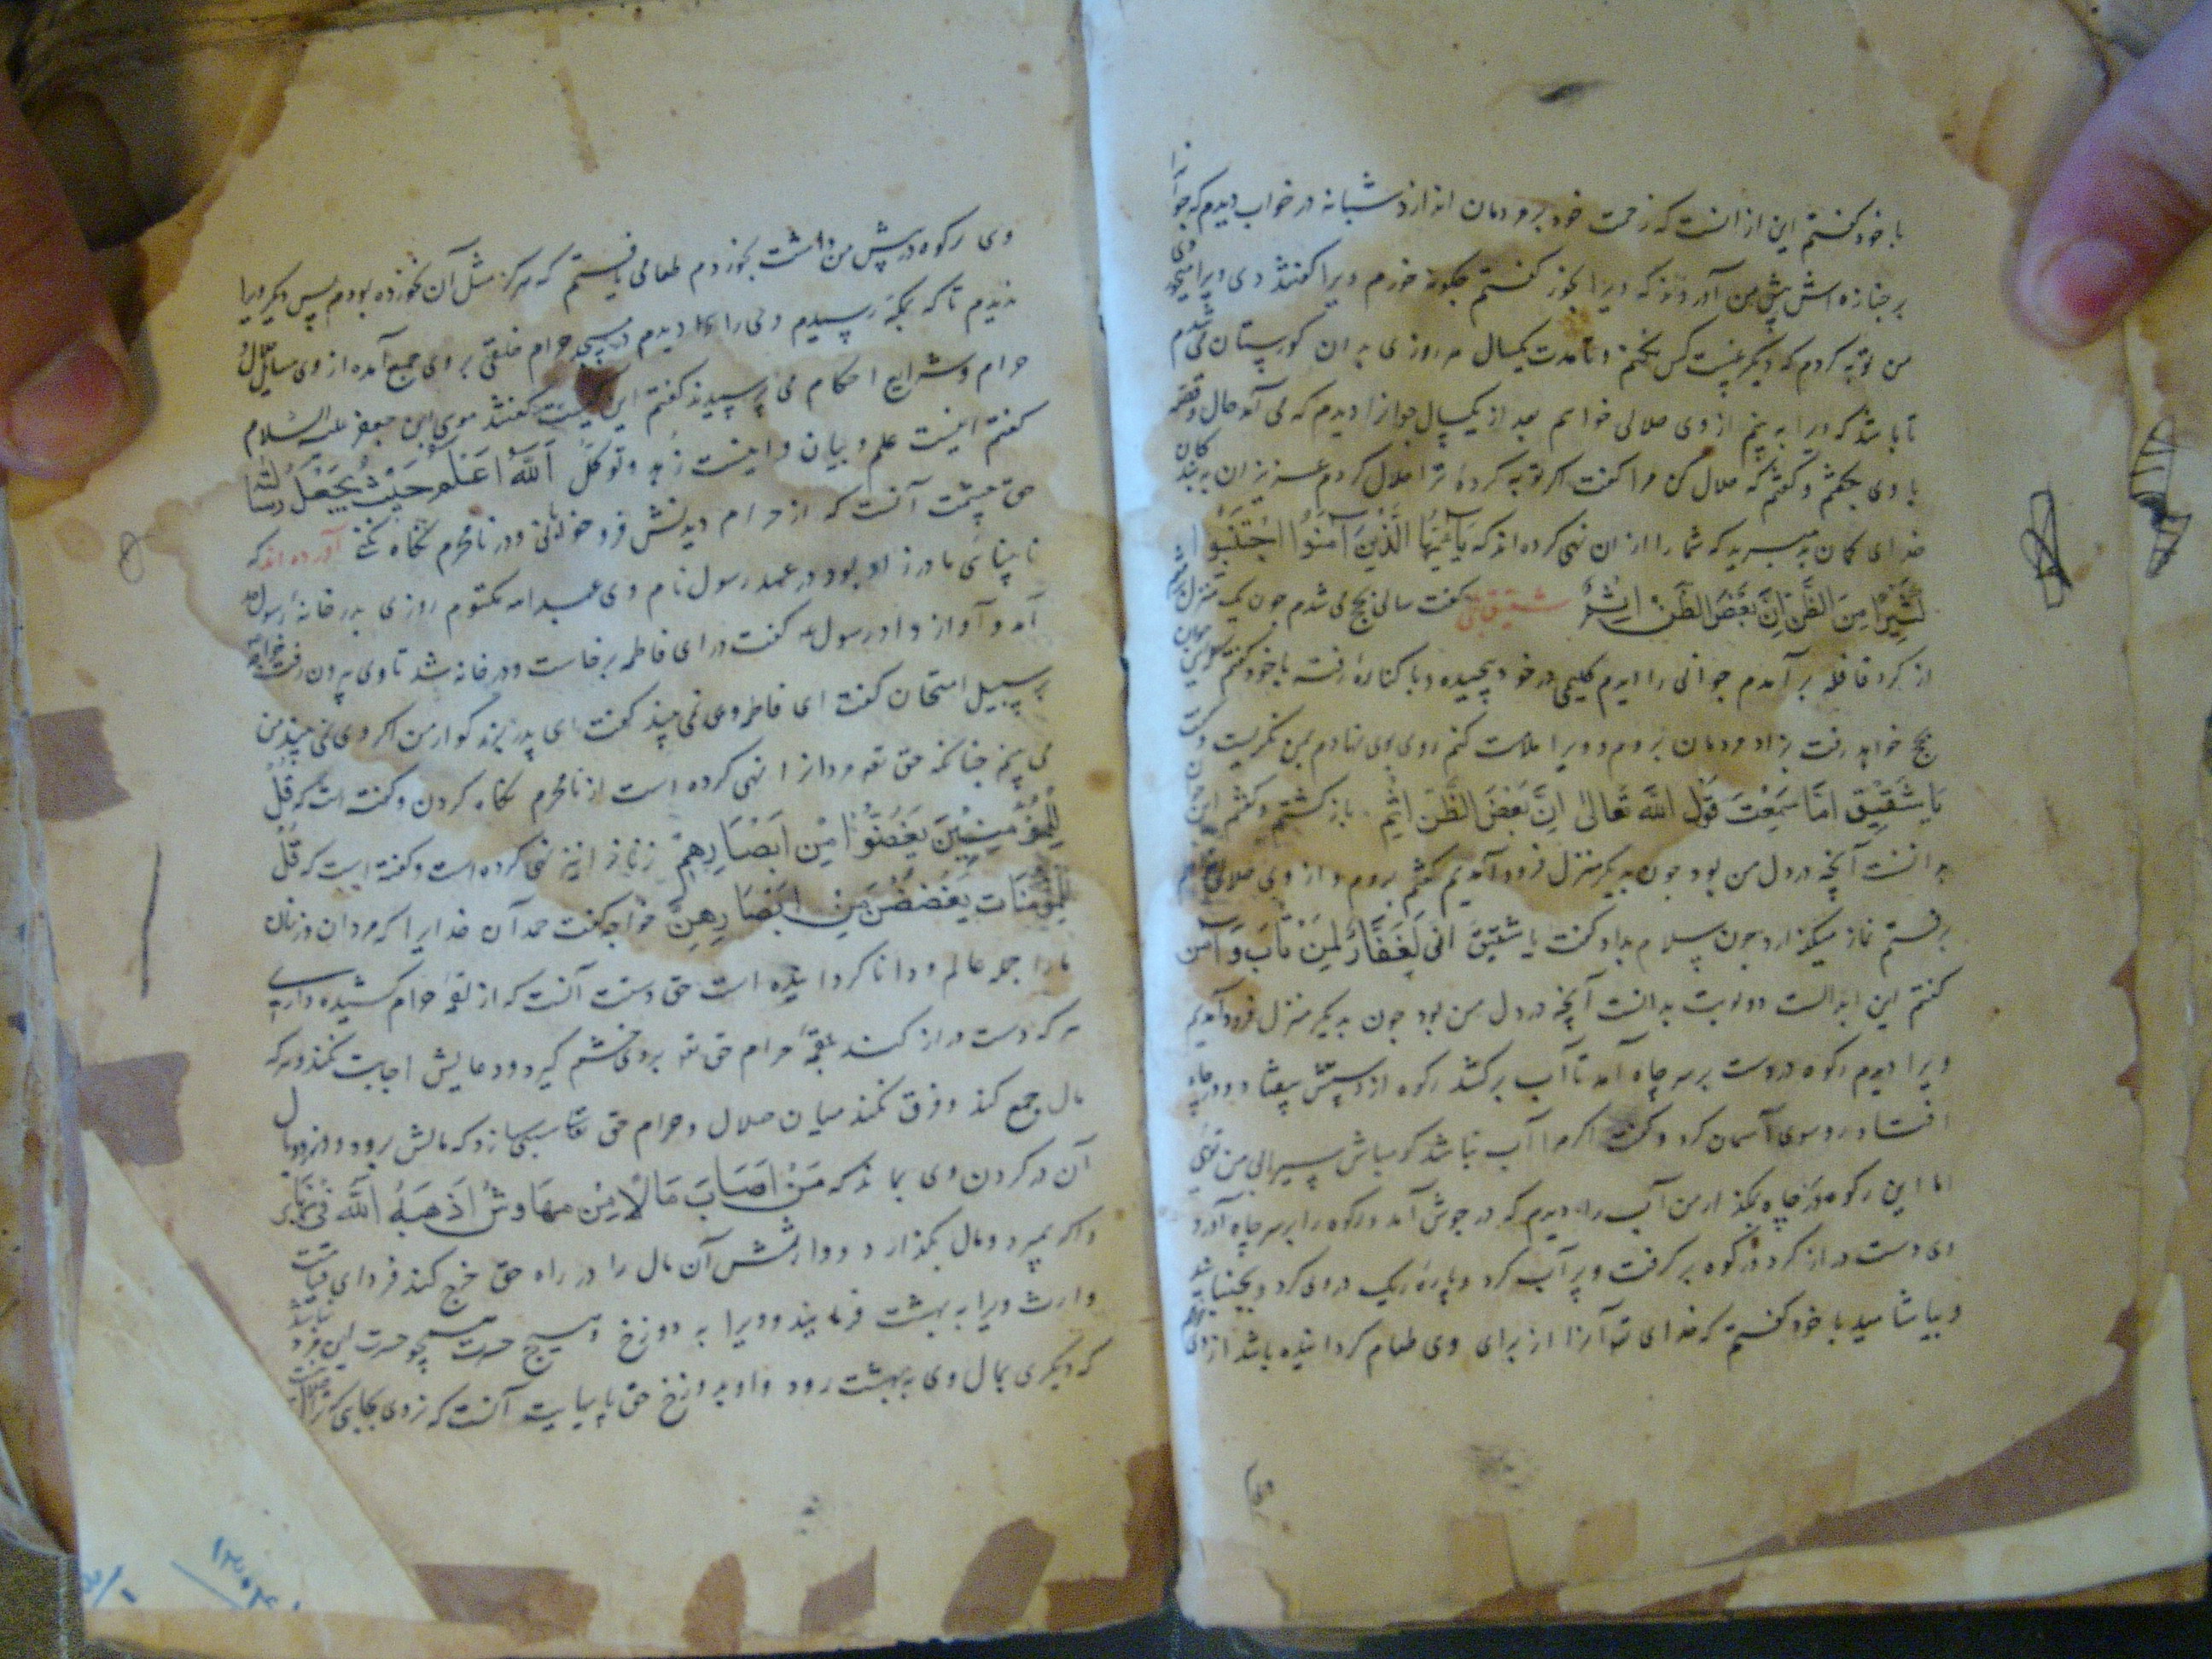 با خود گفتم این از آنست که زحمت خود بر مردمان اندازد شبانه در خواب دیدم که جوانرا
بر جنازه اش پیش من آوردند که ویرا بخور گفتم چگونه خورم ویرا گفتند دی ویرا میخوردی
من توبه کردم که دیگر غیبت کس نکنم و تا مدت یکسال هر روزی بدان گورستان می شدم
تا باشد که ویرا به بینم از وی حلالی خواهم بعد از یکسال جوانرا دیدم که می آمد حال و قصه
با وی بگفتم و گفتم که حلال کن مرا گفت اگر توبه کردهٔ ترا حلال کردم عزیزان به بندگان
خدای گمان بد مبرید که شما را ازان نهی کرده اند که یَا اَیُّهَا الَّذِیْنَ آمَنُوْا اجْتَنِبُوا
کَثِیْرًا مِنَ الظَّنِّ اِنَّ بَعْضَ الظَّنِّ اِثْمٌ شقیق بلخی گفت سالی بحج می شدم چون یک منزل
از گرد قافله برآمدم جوانی را دیدم گلیمی در خود پیچیده و با کنارهٔ رفته با خود گفتم که این جوان
بحج خواهد رفت بزاد مردمان بروم و ویرا ملامت کنم روی بوی نهادم بمن نگریست و گفت
یَا شَقِیْق اَمَا سَمِعْتَ قَوْلَ اللهِ تَعَالیٰ اِنَّ بَعْضَ الظَّنِّ اِثْم باز گشتم و گفتم این
بدانست آنچه در دل من بود چون بدیگر منزل فرود آمدیم گفتم بروم و از وی حلالی
برفتم نماز میگذارد چون سلام بداد گفت یا شقیق انی لَغَفَّارٌ لِمَنْ تَابَ وَ آمَنَ
گفتم این ابدالست دو نوبت بدانست آنچه در دل من بود چون بدیگر منزل فرود آمدیم
ویرا دیدم رکوه در دست بر سر چاه آمد تا آب برکشد رکوه از دستش بیفتاد و در چاه
افتاد رو سوی آسمان کرد و گفت اگر مرا آب نباشد گو مباش سیرابی من توئی
اما این رکوه در چاه مگذار من آب را دیدم که در جوش آمد و رکوه را بر سر چاه آورد
وی دست دراز کرد و رکوه بر گرفت و پر آب کرد و پارهٔ ریگ در وی کرد و بجنبانید
و بیاشامید با خود گفتم که خدای تعه آنرا از برای وی طعام گردانیده باشد از وی
وی رکوه در پیش من داشت بخوردم طعامی یافتم که هرگز مثل آن نخورده بودم پس دیگر ویرا
ندیدم تا که بمکه رسیدم وی را دیدم در مسجد حرام خلقی بر وی جمع آمده از وی مسایل حلال
حرام و شرایع احکام می پرسیدند گفتم این کیست گفتند موسی ابن جعفر علیه السلام
گفتم اینست علم و بیان و اینست زُهد و توکل اَللّٰهُ اَعْلَمُ حَیْثُ یَجْعَلُ رِسَالَتَهُ
حق چشمت آنست که از حرام دیدنش فرو خوابانی و در نامحرم نگاه نکنی آورده اند که
نابینای مادرزاد بود در عهد رسول نام وی عبدالله مکتوم روزی بدر خانهٔ رسول
آمد و آواز داد رسول گفت درآی فاطمه برخاست و در خانه شد تا وی بیرون رفت خواجه
بر سبیل امتحان گفت ای فاطمه وی نمی بیند گفت ای پدر بزرگوار من اگر وی نمی بیند من
می بینم چنانکه حق تعه مردانرا نهی کرده است از نامحرم نگاه کردن و گفته است که قُلْ
لِلْمُؤْمِنِیْنَ یَغُضُّوْا مِنْ اَبْصَارِهِمْ زنانرا نیز نهی کرده است و گفته است که قُلْ
لِلْمُؤْمِنَاتِ یَغْضُضْنَ مِنْ اَبْصَارِهِنَّ خواجه گفت حمد آن خدایرا که مردان و زنان
مارا جمله عالم و دانا گردانیده است حق دستت آنست که از لقمهٔ حرام کشیده داری
هر که دست دراز کند بلقمهٔ حرام حق تعه بر وی خشم گیرد و دعایش اجابت نکند و هر که
مال جمع کند و فرق نکند میان حلال و حرام حق تعه سببی سازد که مالش برود و وزر و وبال
آن در گردن وی بماند که مَنْ اَصَابَ مَالًا مِنْ مَهَاوِشَ اَذْهَبَهُ اللهُ فِیْ نَهَابِرَ
و اگر بمیرد و مال بگذارد و وارثش آن مال را در راه حق خرج کند فردای قیامت
وارث ویرا به بهشت فرمایند و ویرا به دوزخ و هیچ حسرت همچو حسرت این مرد نباشد
که دیگری بمال وی به بهشت رود و او بدوزخ حق پایهایت آنست که نروی بجایی که